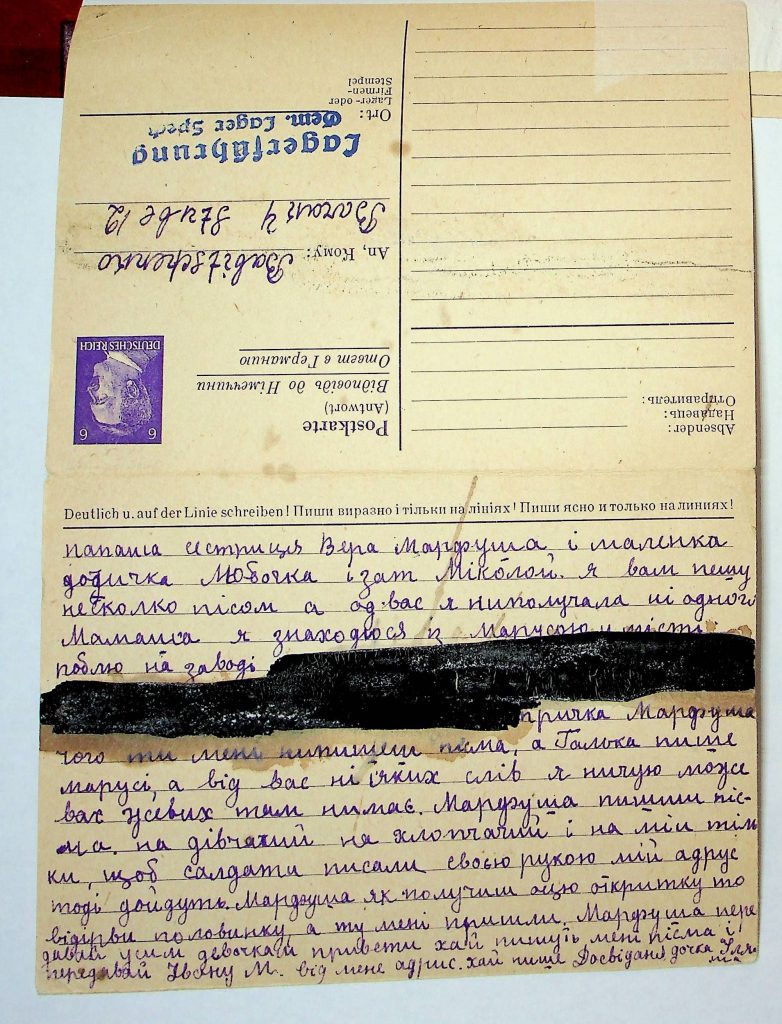 Postkarte
(Antwort)
Відповідь до Німеччини
Ответ в Германию
DEUTSCHES REICH
6 6
An, Кому: Babitschenko
Barani 4 Stube 12
Ort: Lagerführung
Gem. Lager Spech
Lager- oder
Firmen-
Stempel
Absender:
Надавець:
Отправитель:
Deutlich u. auf der Linie schreiben! Пиши виразно і тільки на лініях! Пиши ясно и только на линиях!
папаша сестриця Вера Марфуша і маленка
дочичка Любочка і зат Міколой. я вам пешу
несколко пісом а од вас я ниполучала ні одного
Мамашка я знаходюся із Марусою
роблю на заводі
Марфуша
чого ти мені нипишеш пісма, а Галька пише
марусі, а від вас ні іяких слів я ничую може
вах усевих там нимає. Марфуша пишиш піс-
ма. на дівчачий на хлопчачий і на мій тіль
ки, щоб салдати писали своєю рукою мій адрус
тоді дойдуть. Марфуша як получиш оцю откритку то
відірви половинку а ту мені пришли. Марфуша пере
давай усим девочкам привети хай пишуть мені пісма і
передавай Івану М. від мене адрис. хай пише Досвіданя дочка